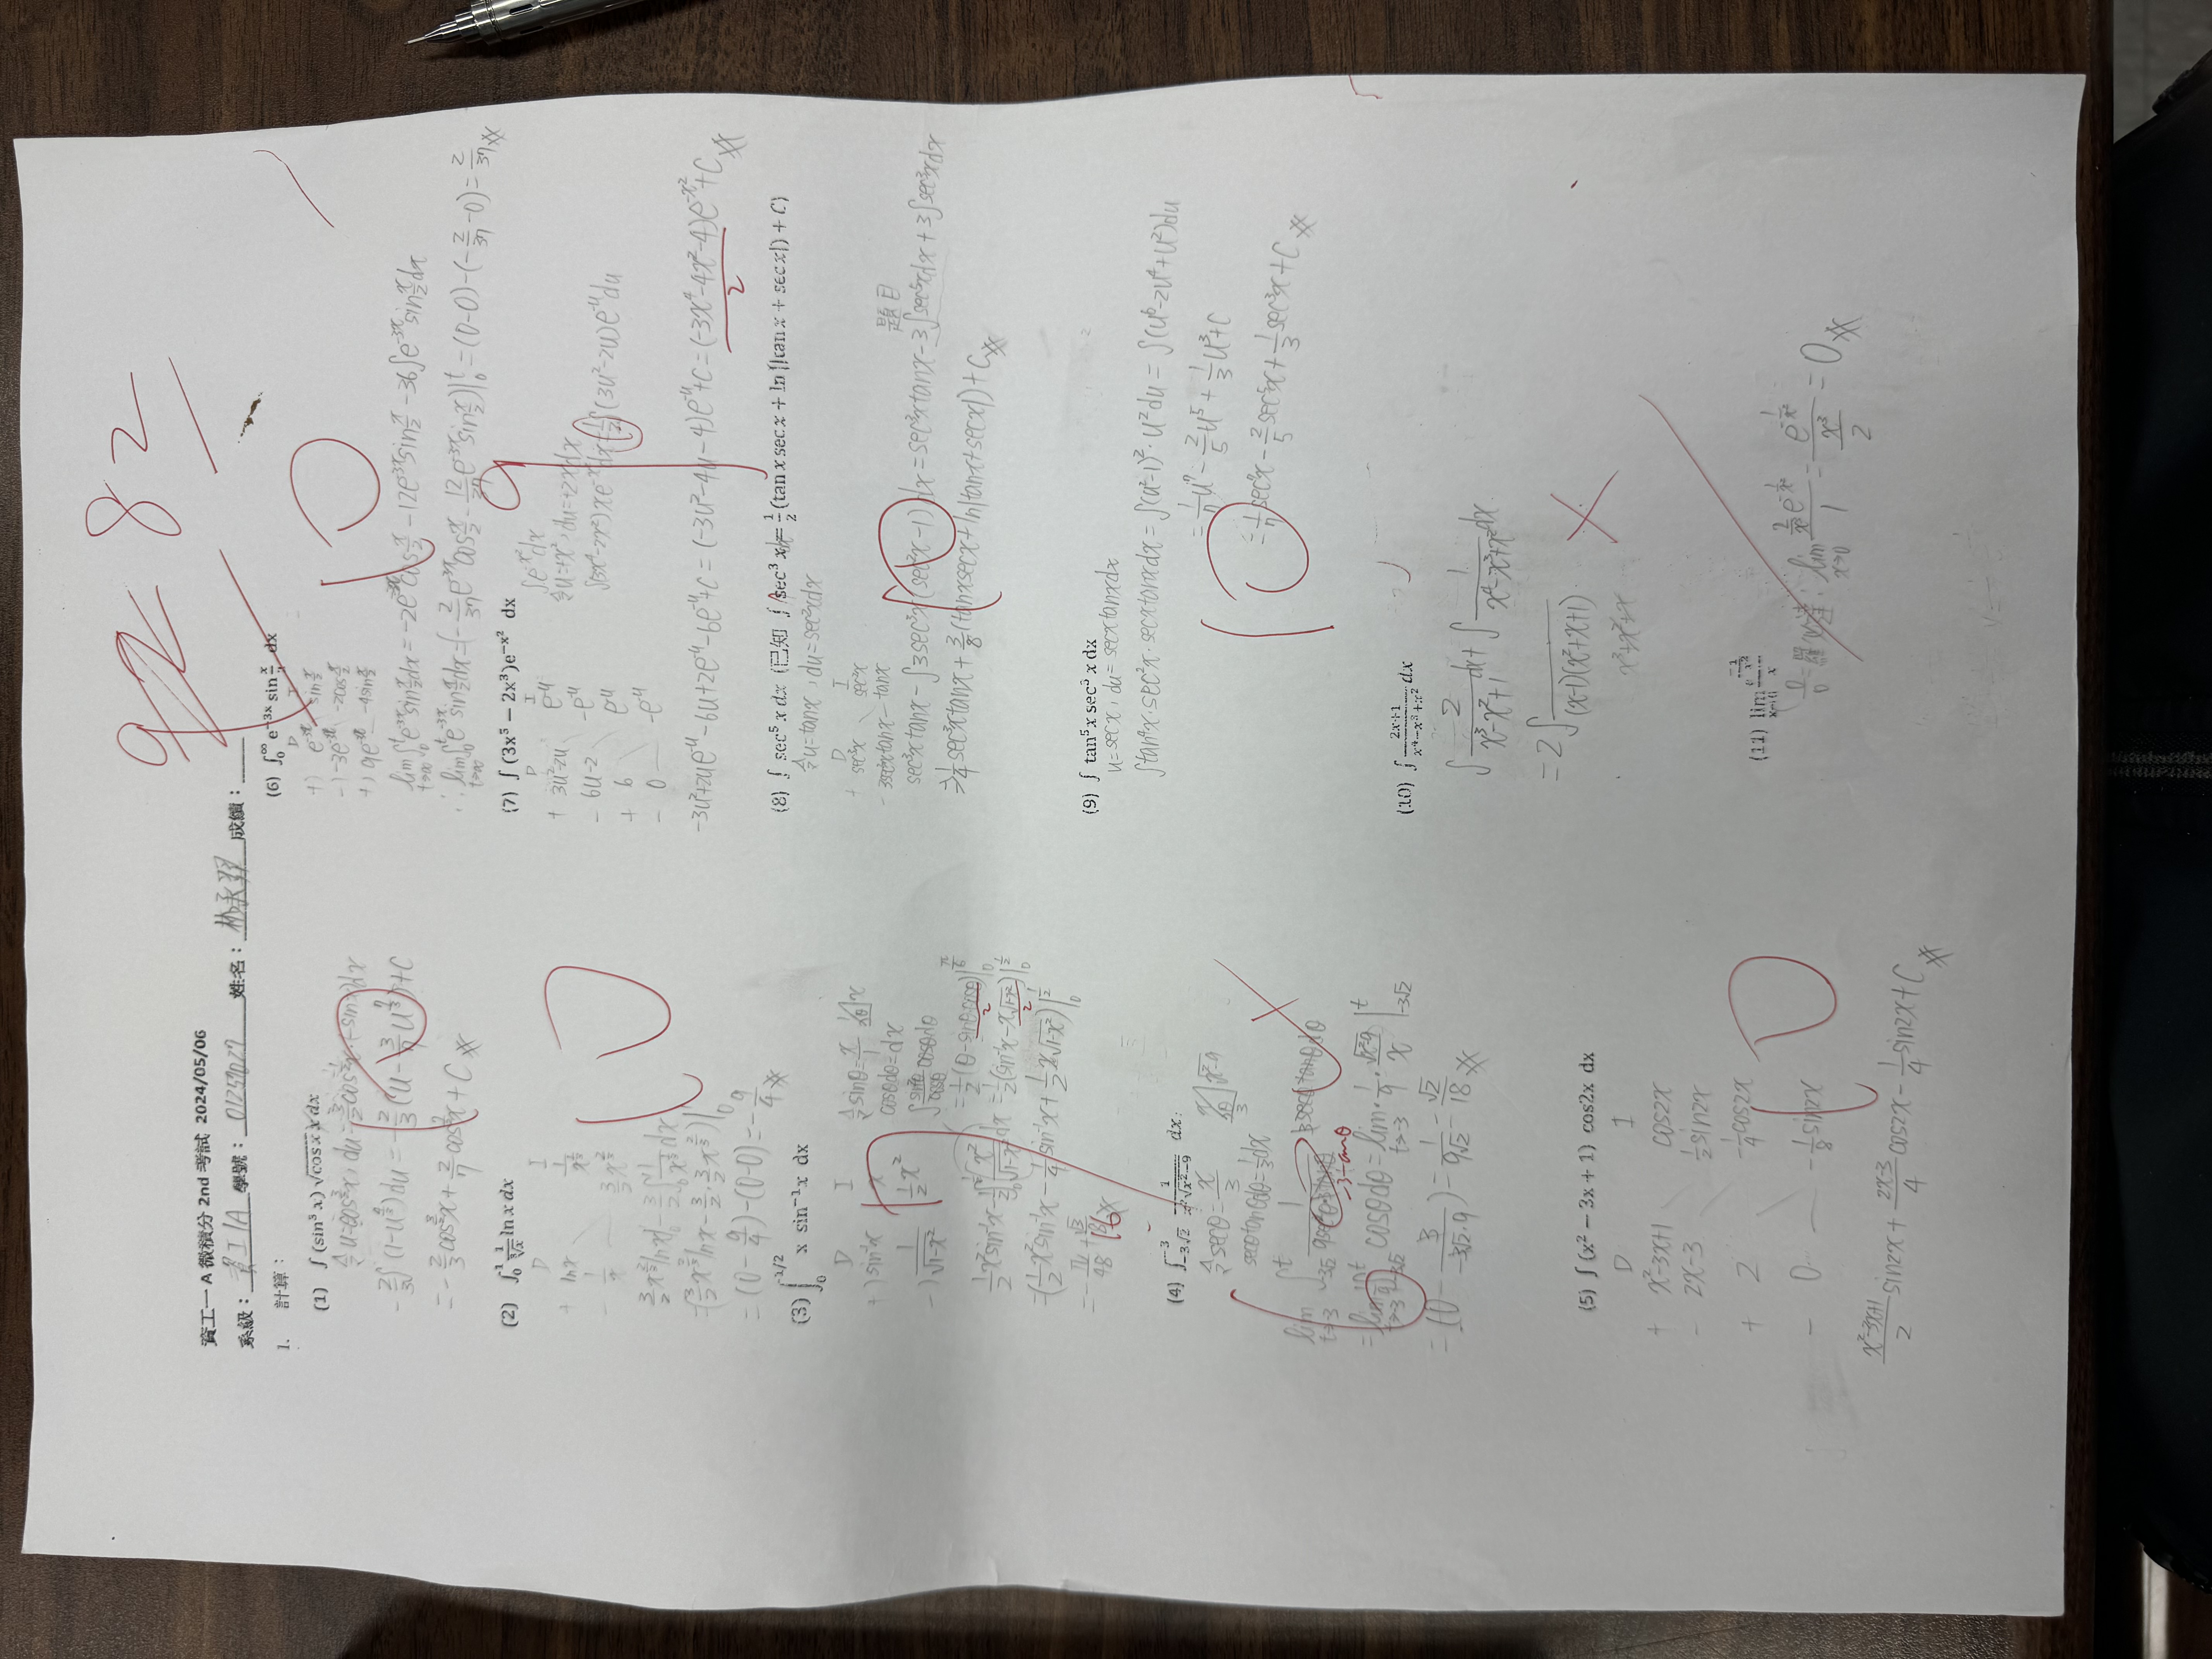 92 82
資工一 A 微積分 2nd 考試 2024/05/06
系級：資工1A 學號：01257027 姓名： 成績：
1. 計算：
(1) ∫ (sin³ x) √cos x x dx
令 u=cos^{3/2}x, du=3/2 cos^{1/2}x·(-sinx)dx
-2/3∫(1-u^{4/3})du = -2/3(u - 3/7 u^{7/3})+C
= -2/3 cos^{3/2}x + 2/7 cos^{7/2}x + C
10
(2) ∫₀¹ 1/∛x ln x dx
D I
+ lnx 1/x^{1/3}
- 1/x 3/2 x^{2/3}
3/2 x^{2/3} lnx|₀¹ - 3/2 ∫₀¹ 1/x^{1/3} dx
=(3/2 x^{2/3} lnx - 3/2 · 3/2 x^{2/3})|₀¹
= (0 - 9/4) - (0-0) = -9/4
10
(3) ∫₀^{1/2} x sin⁻¹x dx
D I
+) sin⁻¹x x
-) 1/√(1-x²) 1/2 x²
令 sinθ = x/1
cosθdθ = dx
∫ sin²θ/cosθ cosθdθ
= 1/2 (θ - sinθ·cosθ)|₀^{π/6}
2
1/2 x² sin⁻¹x - 1/2 ∫₀^{1/2} x²/√(1-x²) dx = 1/2 (sin⁻¹x - x√(1-x²))|₀^{1/2}
2
=(1/2 x² sin⁻¹x - 1/4 sin⁻¹x + 1/2 x√(1-x²))|₀^{1/2}
= -π/48 + √3/8
16
(4) ∫_{-3√2}^{-3} 1/(x²√(x²-9)) dx
令 secθ = x/3
x θ 3 √x²-9
secθtanθdθ = 1/3 dx
lim_{t→-3} ∫_{-3√2}^{t} 1/(9sec²θ·3tanθ) 3secθtanθdθ
-3tanθ
= lim_{t→-3} 1/9 ∫_{-3√2}^{t} cosθdθ = lim_{t→-3} · 1/9 · √(x²-9)/x |_{-3√2}^{t}
= (0 - 3/(-3√2·9)) = 1/(9√2) = √2/18
(5) ∫ (x² − 3x + 1) cos2x dx
D I
+ x²-3x+1 cos2x
- 2x-3 1/2 sin2x
+ 2 -1/4 cos2x
- 0 -1/8 sin2x
10
(x²-3x+1)/2 sin2x + (2x-3)/4 cos2x - 1/4 sin2x + C
(6) ∫₀^∞ e^{−3x} sin x/2 dx
D I
+) e^{-3x} sin x/2
-) -3e^{-3x} -2cos x/2
+) 9e^{-3x} -4sin x/2
10
lim_{t→∞} ∫₀^t e^{-3x} sin x/2 dx = -2e^{-3x} cos x/2 - 12e^{-3x} sin x/2 - 36∫e^{-3x} sin x/2 dx
∴ lim_{t→∞} ∫₀^t e^{-3x} sin x/2 dx = (-2/37 e^{-3x} cos x/2 - 12/37 e^{-3x} sin x/2)|₀^t = (0-0) - (-2/37 - 0) = 2/37
(7) ∫ (3x⁵ − 2x³)e^{−x²} dx
D I
+ 3u²-2u e^{-u}
- 6u-2 -e^{-u}
+ 6 e^{-u}
- 0 -e^{-u}
∫e^{-x²}dx
令 u=+x², du=+2xdx
∫(3x⁴-2x²)xe^{-x²}dx = 1/2 ∫(3u²-2u)e^{-u}du
9
-3u²+2ue^{-u} - 6u+2e^{-u} - 6e^{-u}+C = (-3u²-4u-4)e^{-u}+C = (-3x⁴-4x²-4)e^{-x²}+C
2
(8) ∫ sec⁵ x dx (已知 ∫ sec³ x dx = 1/2 (tan x sec x + ln (|tan x + sec x|) + C)
令 u=tanx, du=sec²xdx
D I
+ sec³x sec²x
- 3sec³xtanx tanx
題目
sec³xtanx - ∫3sec³x(sec²x-1)dx = sec³xtanx - 3∫sec⁵xdx + 3∫sec³xdx
⇒ 1/4 sec³xtanx + 3/8 (tanxsecx + ln|tanx+secx|) + C
10
(9) ∫ tan⁵ x sec³ x dx
u=secx, du=secxtanxdx
∫tan⁴x·sec²x·secxtanxdx = ∫(u²-1)²·u²du = ∫(u⁶-2u⁴+u²)du
= 1/7 u⁷ - 2/5 u⁵ + 1/3 u³+C
= 1/7 sec⁷x - 2/5 sec⁵x + 1/3 sec³x + C
10
(10) ∫ (2x+1)/(x⁴−x³+x²) dx
∫ 2/(x³-x²+1) dx + ∫ 1/(x⁴-x³+x²) dx
= 2∫ /((x-1)(x²+x+1))
x³+x²+x
(11) lim_{x→0} e^{-1/x²}/x
0/0 = 羅必達: lim_{x→0} (2/x³ e^{-1/x²})/1 = e^{-1/x²}/(x³/2) = 0